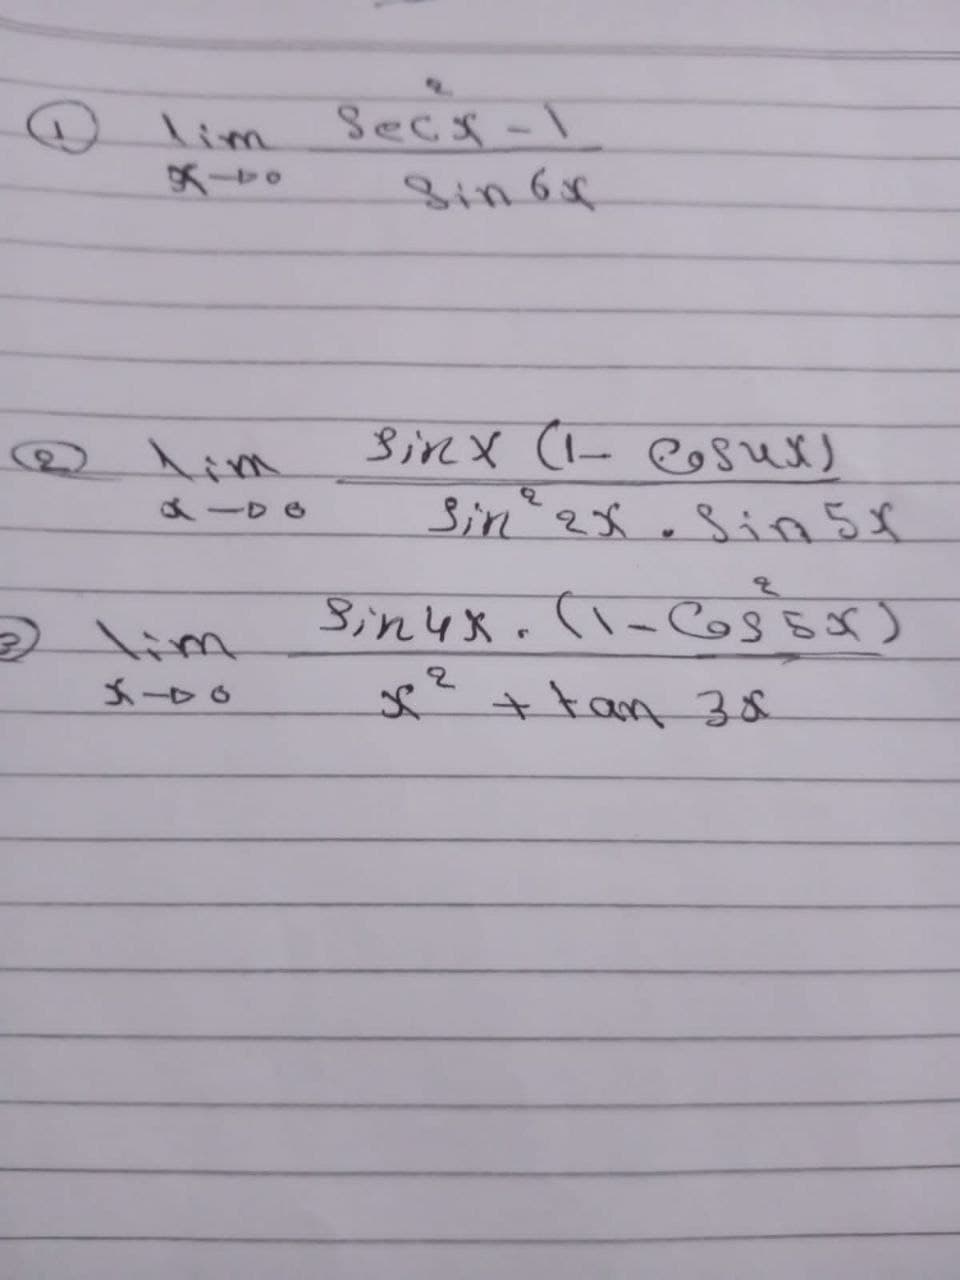 ① lim sec²x - 1
x→0 sin 6x
② lim sinx (1- cos4x)
x→0 sin²2x . sin 5x
③ lim sin4x . (1 - cos²5x)
x→0 x² + tan 3x